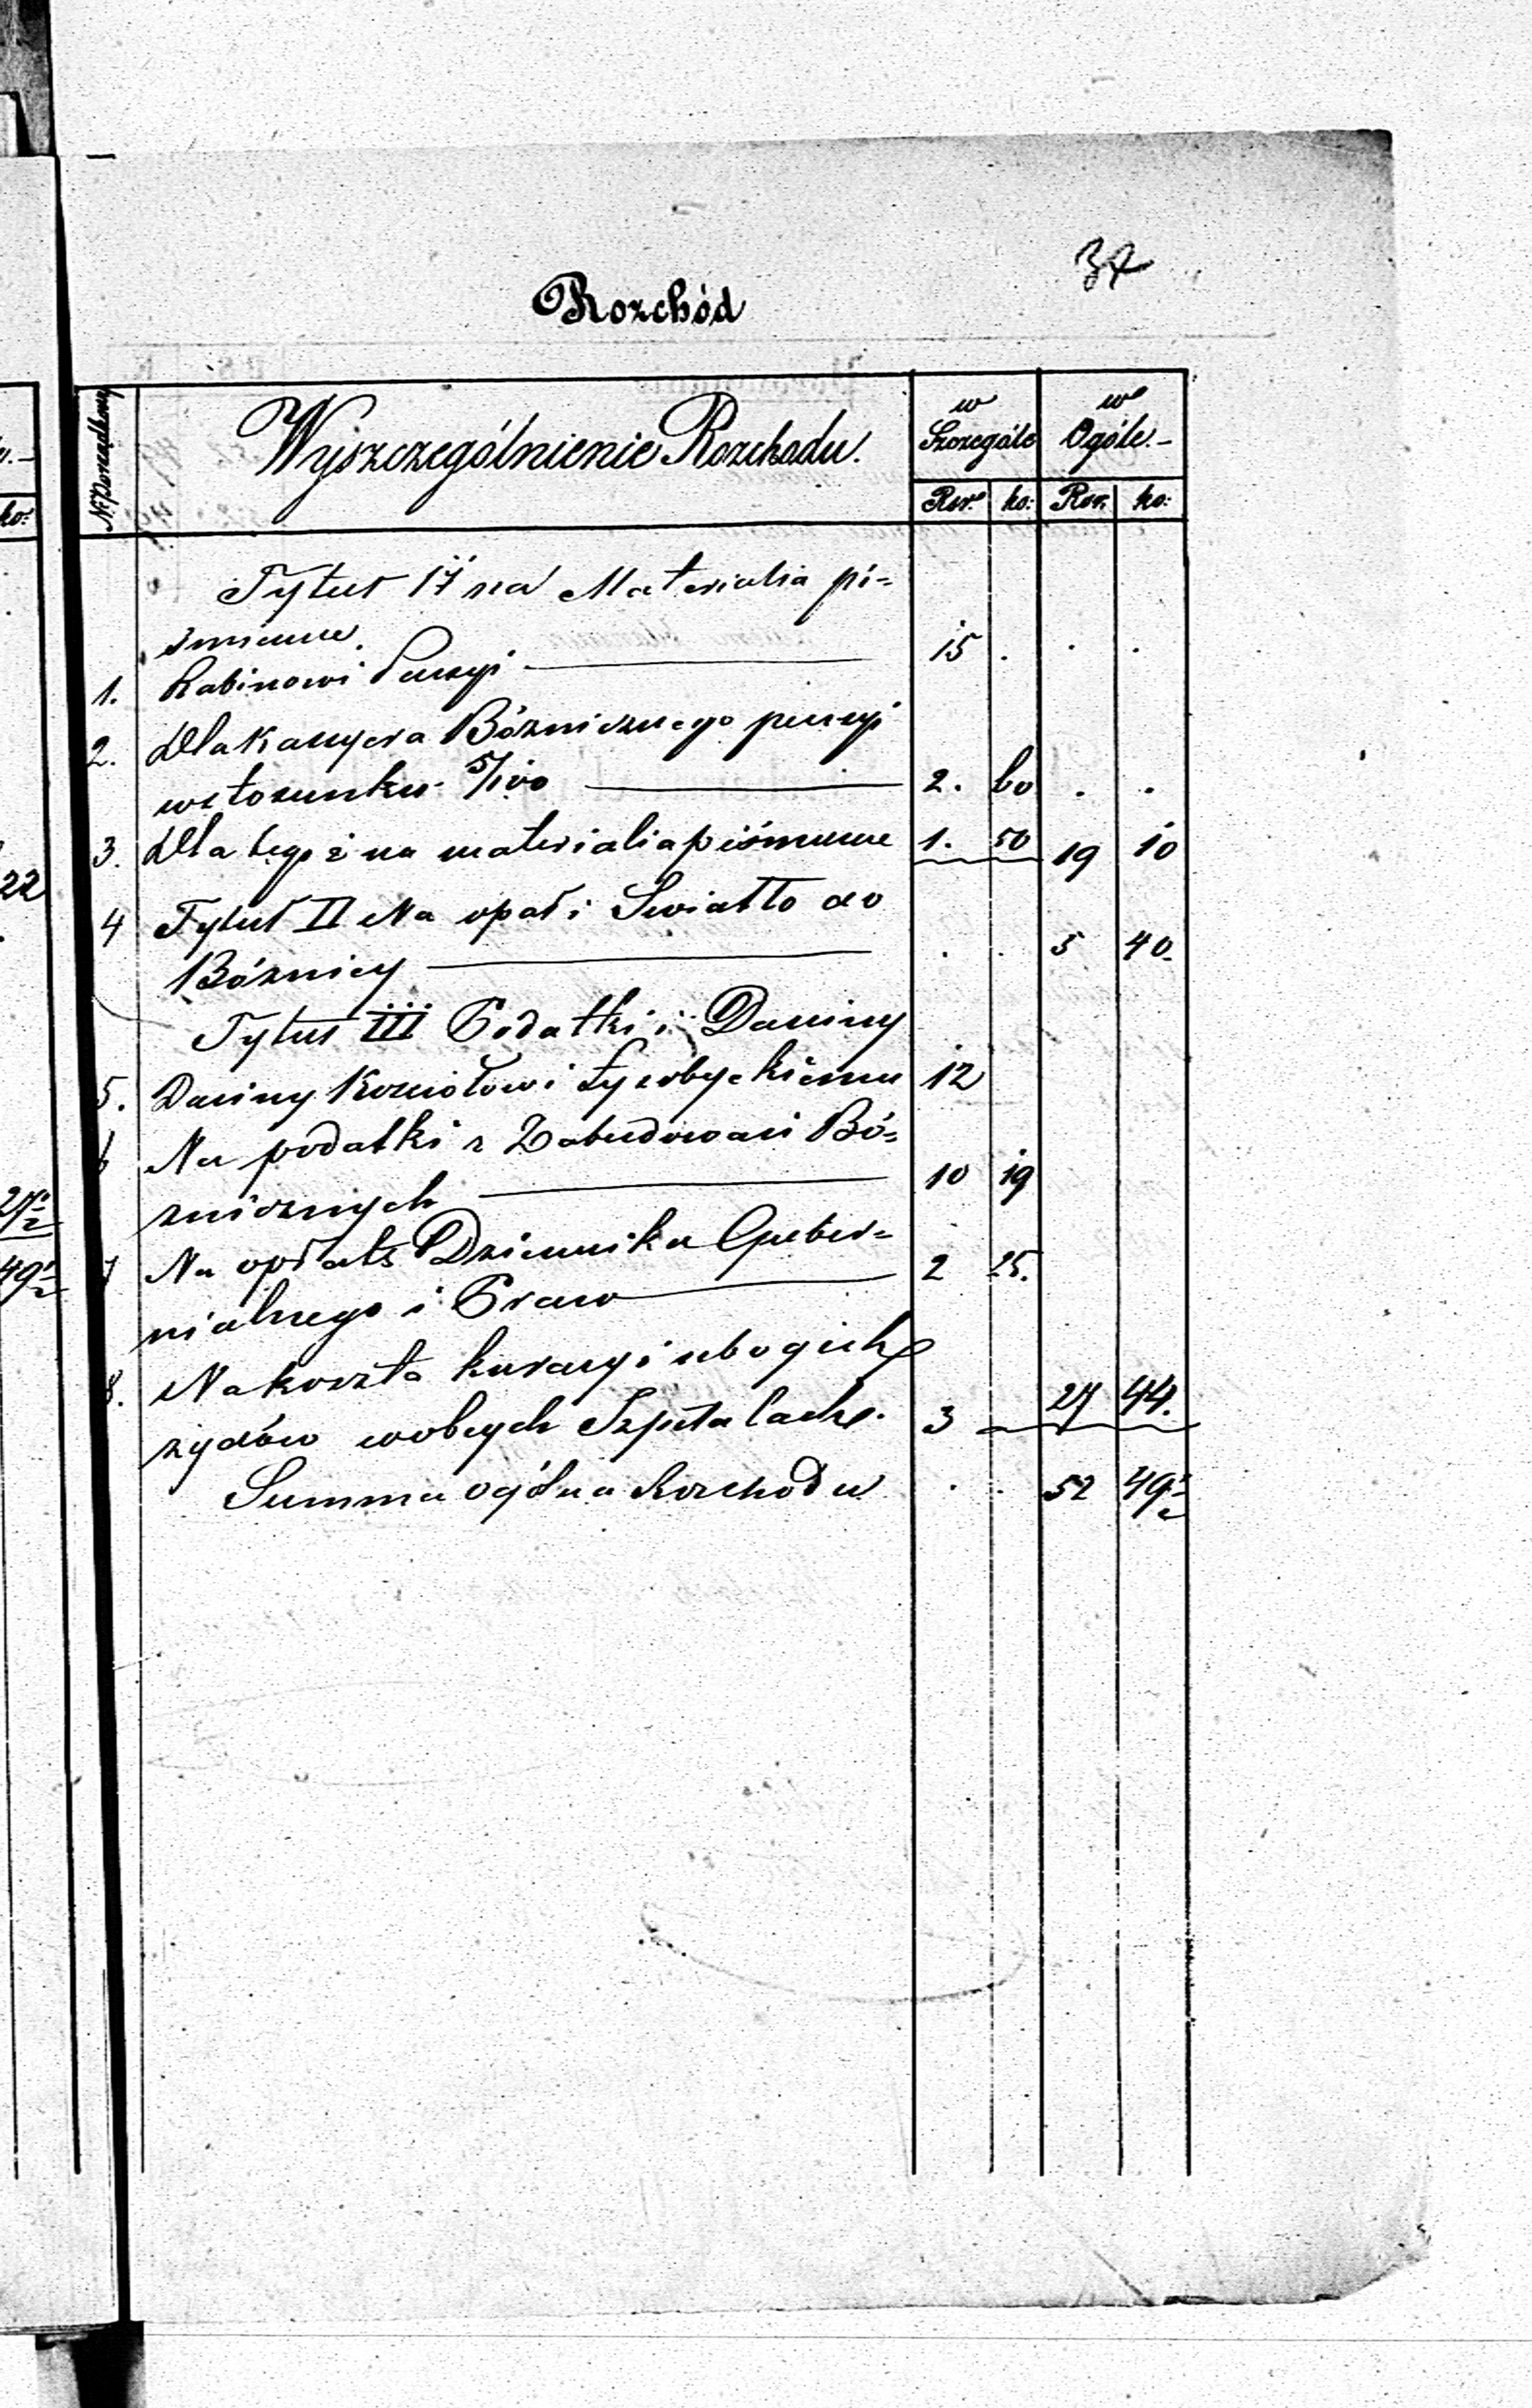 37
Rozchód
Nr Porządkowy
Wyszczególnienie Rozchodu.
w Szczególe
w Ogóle.-
Rsr. ko: Rsr. ko:
Tytuł na Materialia pi=
śmienne.
1. Rabinowi Pensyi 15 . . .
2. Dla Kasyera Bóżnicznego pensyi
w stosunku 5/100 2. 60 . .
3. Dla tegoż na materialia piśmienne 1. 50 19 10
4 Tytuł II Na opał i Swiatło do
Bóżnicy . . 5 40.
Tytuł III Podatki i Daniny
5. Daniny Kosciołowi 12
6 Na podatki z Zabudowań Bó=
żnicznych 10 19
7 Na opłatę Dziennika Guber=
nialnego i Praw 2 25.
8. Na koszta kuracyi ubogich
żydów w obcych Szpitalach. 3 27 44.
Summa ogólna Rozchodu . . 52 49½
ko:
22
27½
49½